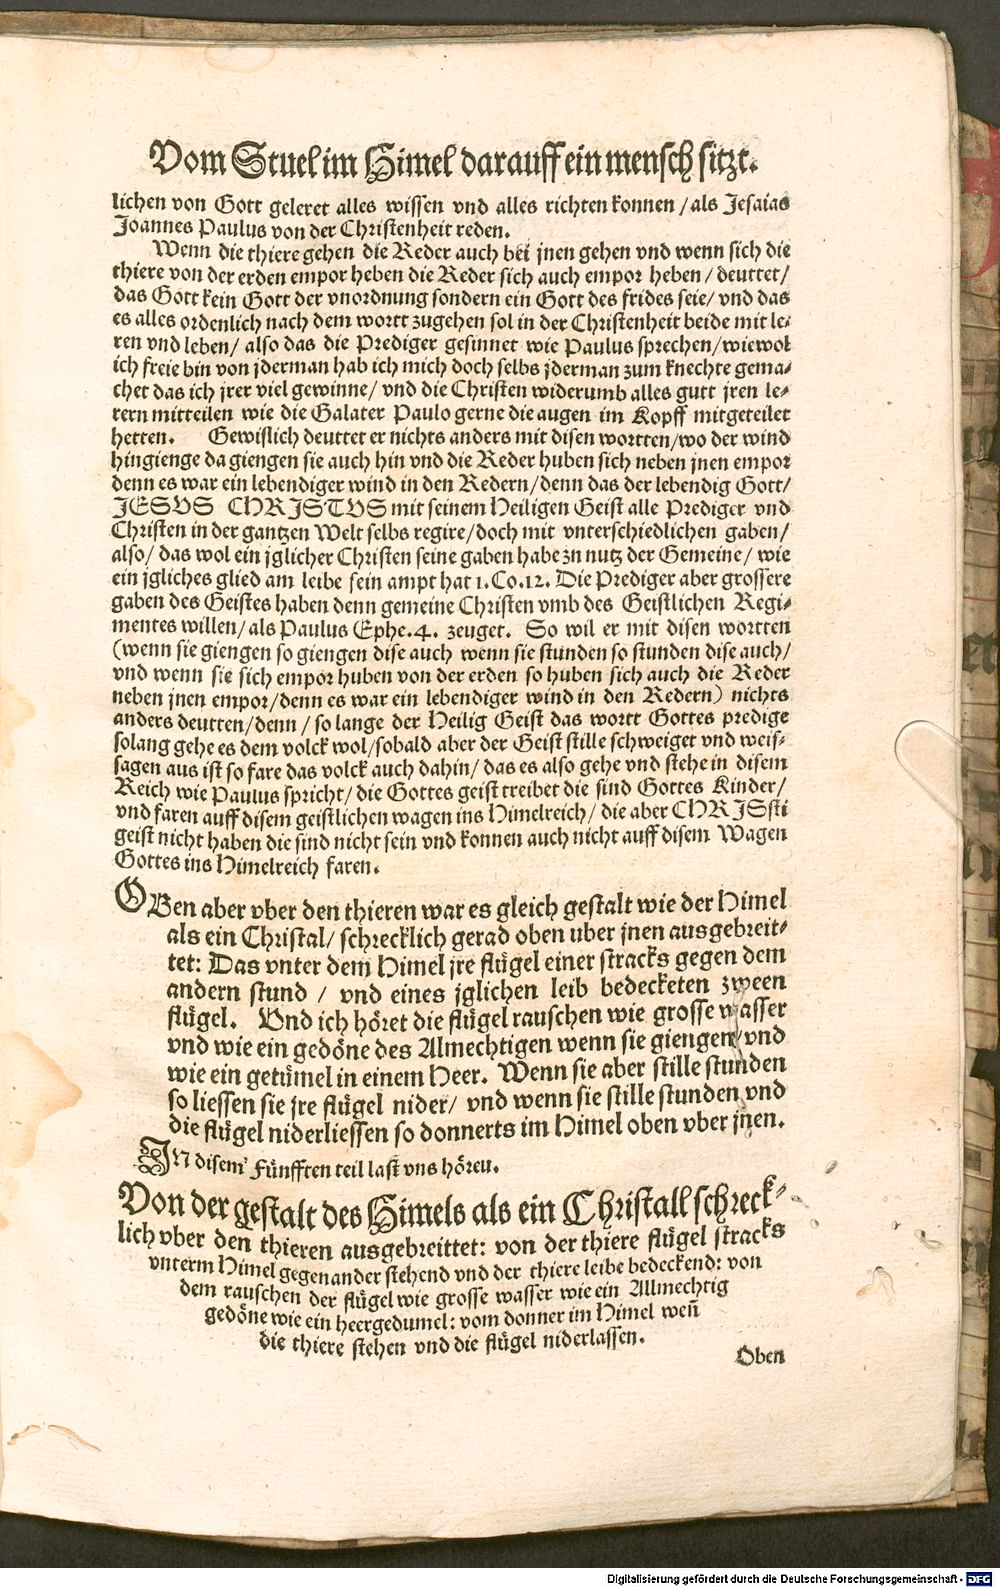 Vom Stuel im Himel darauff ein mensch sitzt.
lichen von Gott geleret alles wissen vnd alles richten konnen / als Jesaias
Joannes Paulus von der Christenheit reden.
Wenn die thiere gehen die Reder auch bei jnen gehen vnd wenn sich die
thiere von der erden empor heben die Reder sich auch empor heben / deuttet /
das Gott kein Gott der vnordnung sondern ein Gott des frides seie / vnd das
es alles ordenlich nach dem wortt zugehen sol in der Christenheit beide mit le⸗
ren vnd leben / also das die Prediger gesinnet wie Paulus sprechen / wiewol
ich freie bin von jderman hab ich mich doch selbs jderman zum knechte gema⸗
chet das ich jrer viel gewinne / vnd die Christen widerumb alles gutt jren le⸗
rern mitteilen wie die Galater Paulo gerne die augen im Kopff mitgeteilet
hetten. Gewislich deuttet er nichts anders mit disen wortten / wo der wind
hingienge da giengen sie auch hin vnd die Reder huben sich neben jnen empor
denn es war ein lebendiger wind in den Redern / denn das der lebendig Gott /
JESVS CHRJSTVS mit seinem Heiligen Geist alle Prediger vnd
Christen in der gantzen Welt selbs regire / doch mit vnterschiedlichen gaben /
also / das wol ein jglicher Christen seine gaben habe zn nutz der Gemeine / wie
ein jgliches glied am leibe sein ampt hat 1. Co. 12. Die Prediger aber grossere
gaben des Geistes haben denn gemeine Christen vmb des Geistlichen Regi⸗
mentes willen / als Paulus Ephe. 4. zeuget. So wil er mit disen wortten
(wenn sie giengen so giengen dise auch wenn sie stunden so stunden dise auch /
vnd wenn sie sich empor huben von der erden so huben sich auch die Reder
neben jnen empor / denn es war ein lebendiger wind in den Redern) nichts
anders deutten / denn / so lange der Heilig Geist das wortt Gottes predige
solang gehe es dem volck wol / sobald aber der Geist stille schweiget vnd weis⸗
sagen aus ist so fare das volck auch dahin / das es also gehe vnd stehe in disem
Reich wie Paulus spricht / die Gottes geist treibet die sind Gottes Kinder /
vnd faren auff disem geistlichen wagen ins Himelreich / die aber CHRJSsti
geist nicht haben die sind nicht sein vnd konnen auch nicht auff disem Wagen
Gottes ins Himelreich faren.
OBen aber vber den thieren war es gleich gestalt wie der Himel
als ein Christal / schrecklich gerad oben uber jnen ausgebreit⸗
tet: Das vnter dem Himel jre flügel einer stracks gegen dem
andern stund / vnd eines jglichen leib bedecketen zween
flügel. Vnd ich höret die flügel rauschen wie grosse wasser
vnd wie ein gedöne des Almechtigen wenn sie giengen / vnd
wie ein getümel in einem Heer. Wenn sie aber stille stunden
so liessen sie jre flügel nider / vnd wenn sie stille stunden vnd
die flügel niderliessen so donnerts im Himel oben vber jnen.
JN disem Fünfften teil last vns hören.
Von der gestalt des Himels als ein Christall schreck⸗
lich vber den thieren ausgebreittet: von der thiere flügel stracks
vnterm Himel gegenander stehend vnd der thiere leibe bedeckend: von
dem rauschen der flügel wie grosse wasser wie ein Allmechtig
gedöne wie ein heergedumel: vom donner im Himel weñ
die thiere stehen vnd die flügel niderlassen.
Oben
Digitalisierung gefördert durch die Deutsche Forschungsgemeinschaft - DFG